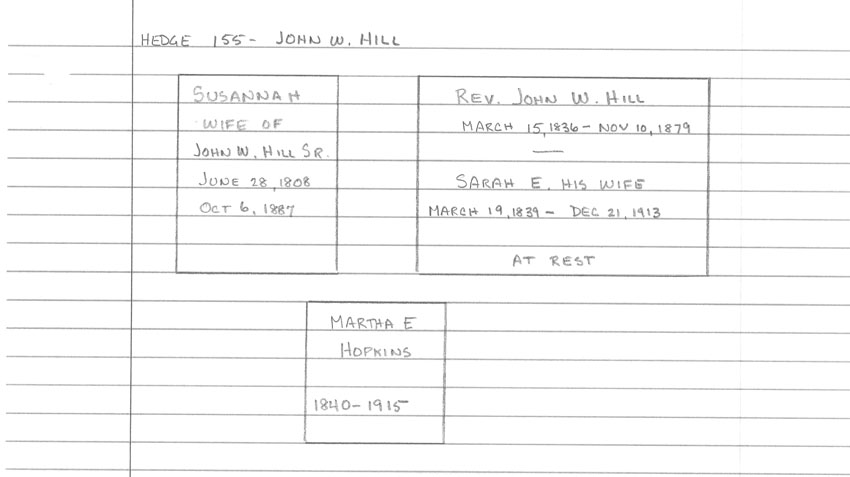 HEDGE 155- JOHN W. HILL
SUSANNAH
WIFE OF
JOHN W. HILL SR.
JUNE 28, 1808
OCT 6, 1887
REV. JOHN W. HILL
MARCH 15, 1836 - NOV 10, 1879
SARAH E. HIS WIFE
MARCH 19, 1839 - DEC 21, 1913
AT REST
MARTHA E
HOPKINS
1840-1915